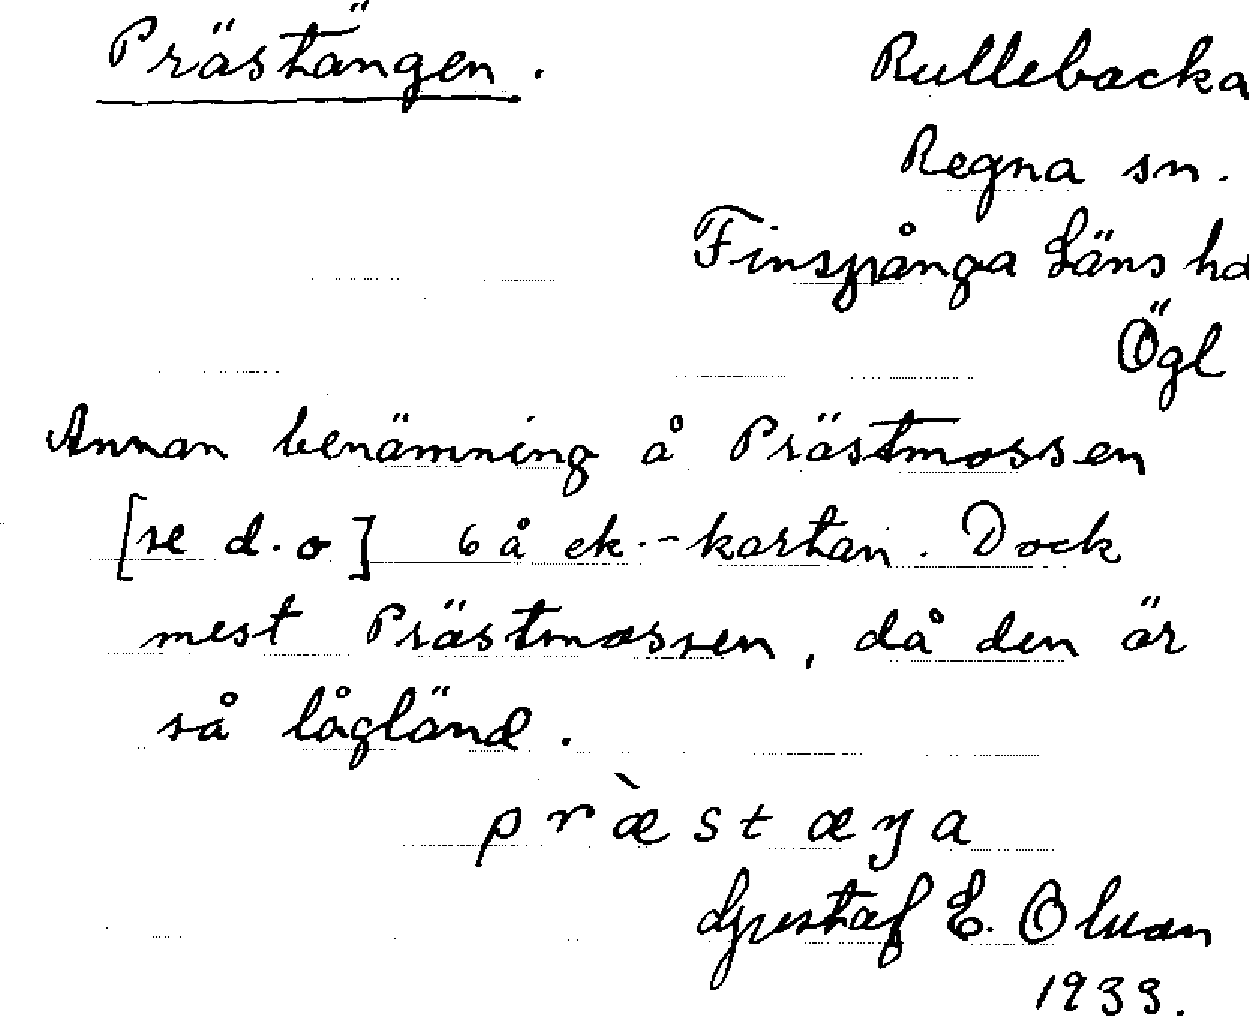 Prästängen. Rullebacka
Regna sn.
Finspånga Läns hd
Ögl
Annan benämning å Prästmossen
[se d.o] 6 å ek.-kartan. Dock
mest Prästmossen, då den är
så lågländ.
præ̀stæŋa
Gustaf E. Olsson
1933.